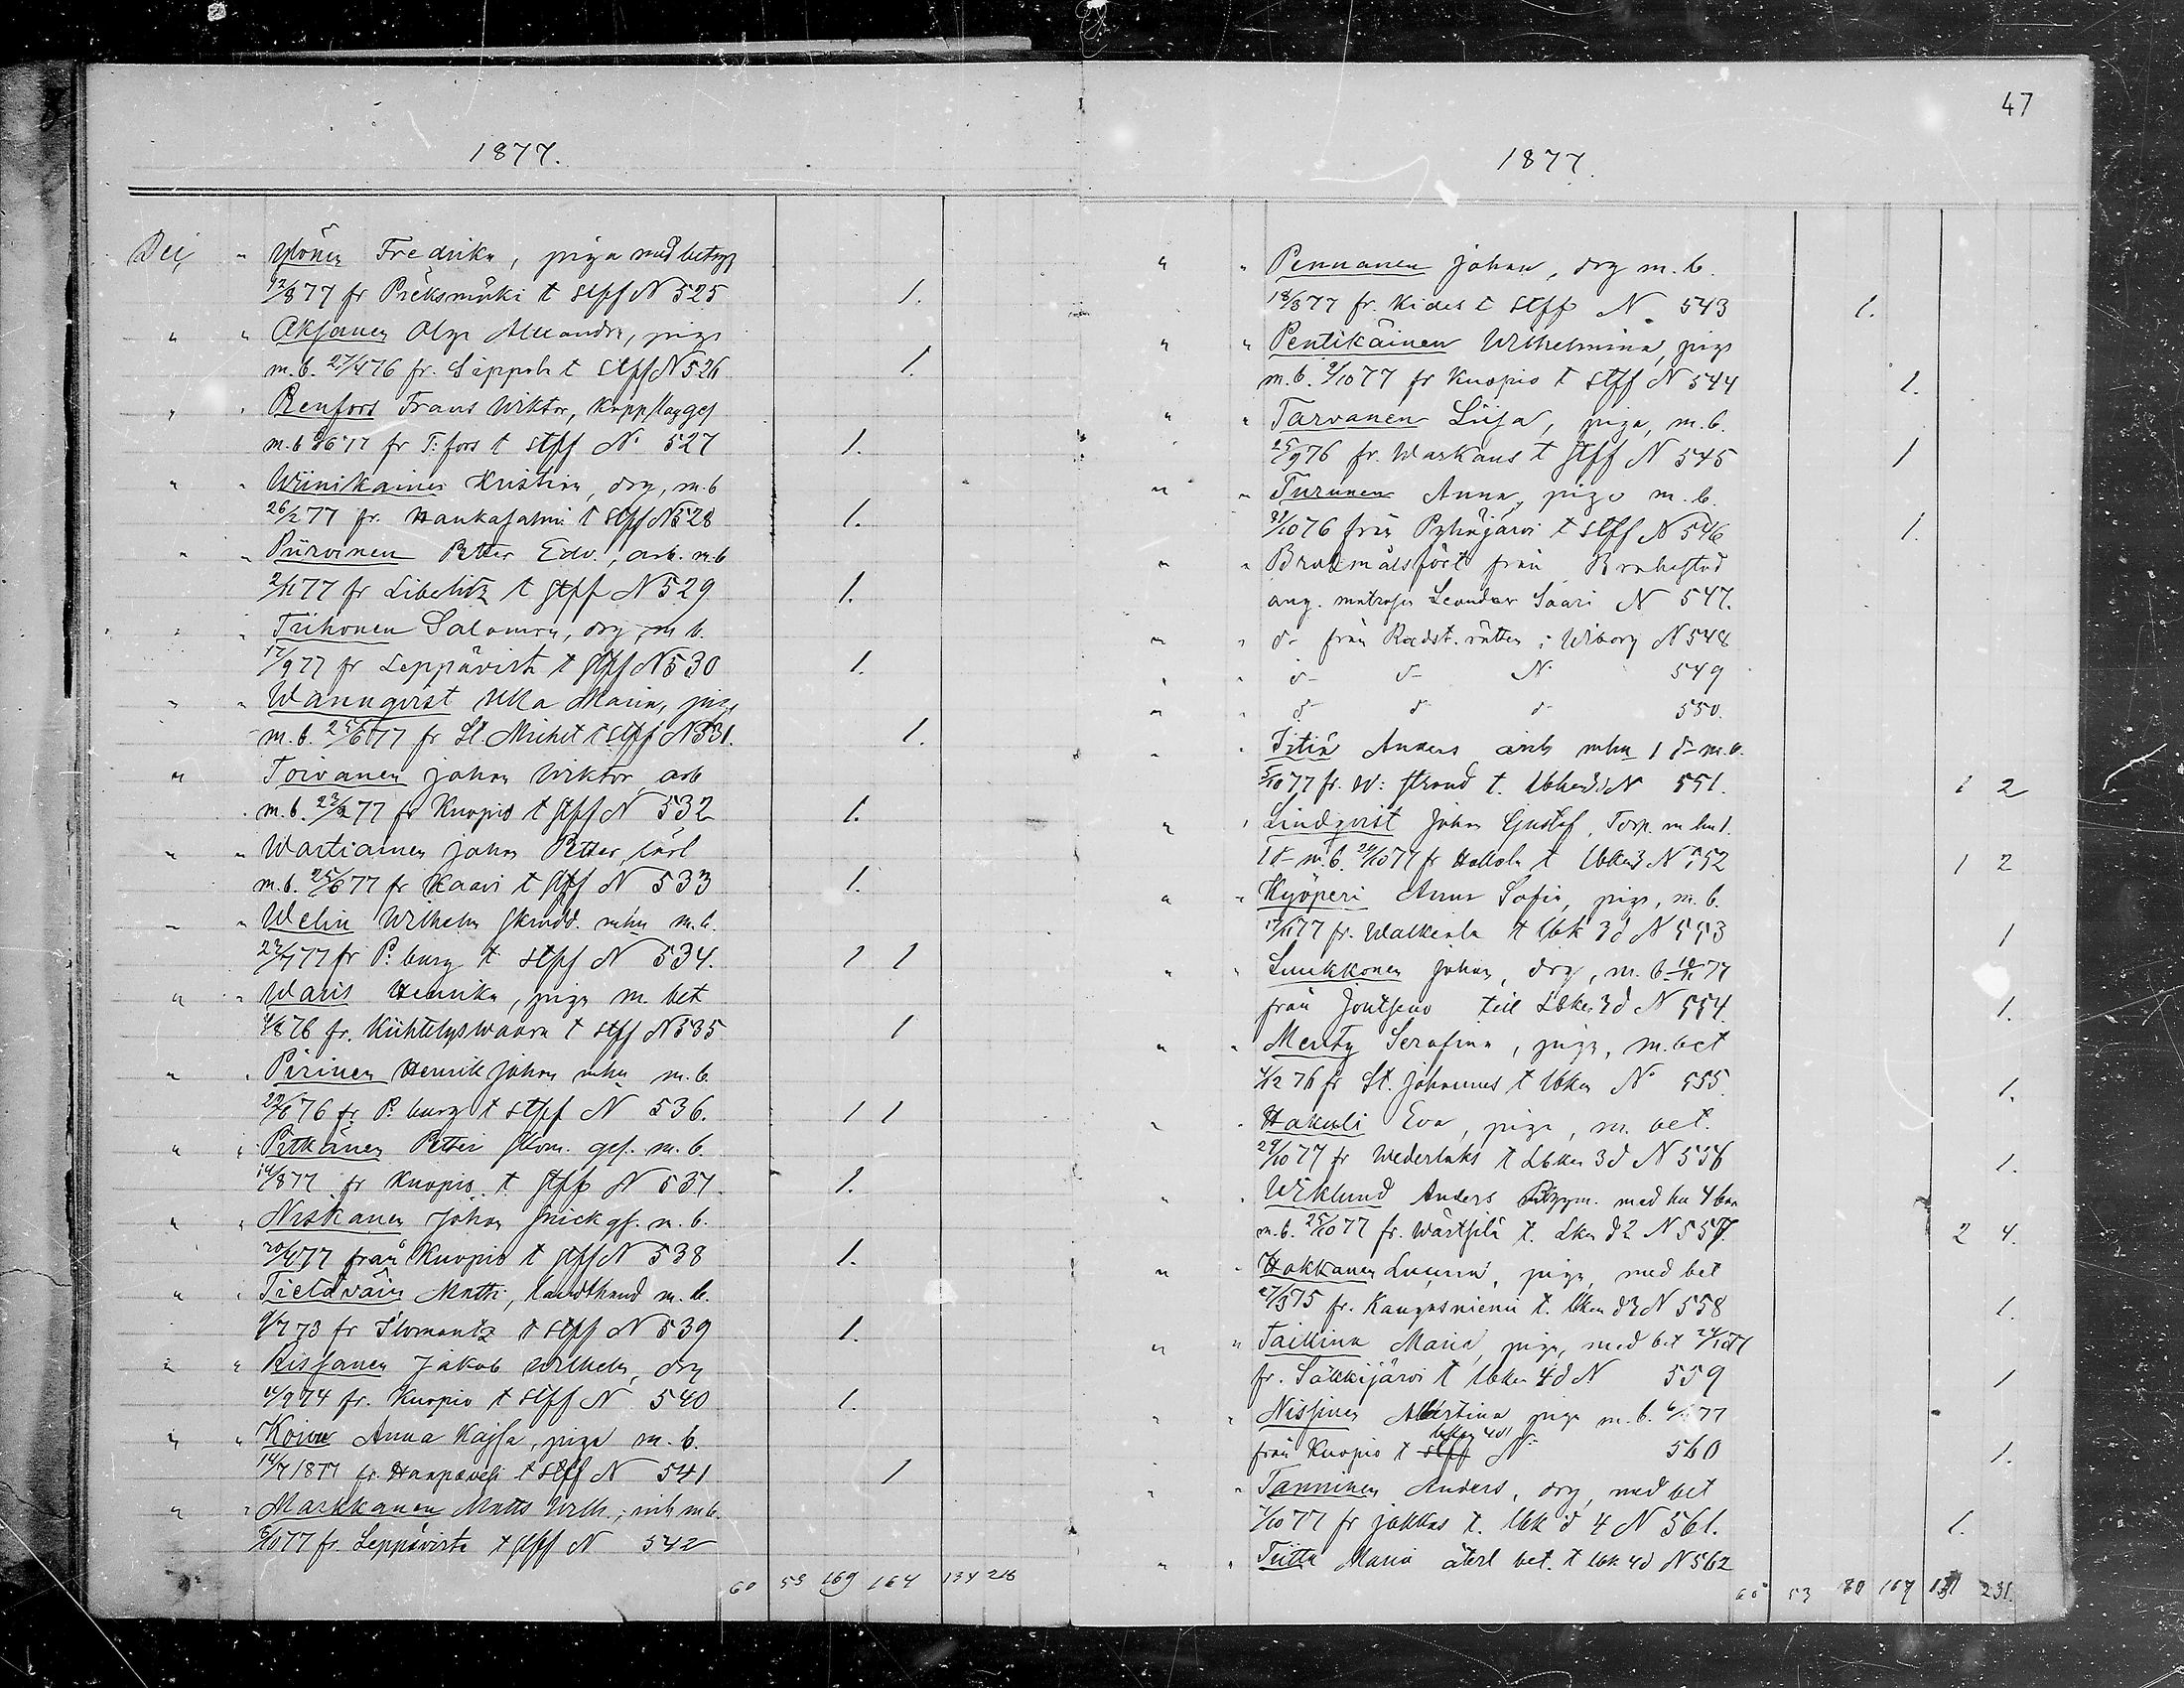 47
1877.
Dec " Ylönen Fredrika, piga med betyg
12/8 77 fr Pieksmäki t stpf N 525 1.
" " Aksanen Olga Alexandra, piga
m.b. 27/4 76 fr. Säppola t stpf N 526 1.
" " Renfors Frans Wiktor, koppslag ges
m.b 9/6 77 fr T:fors t stpf No 527 1.
" " Wiinikainen Kristian, drg, m.b
26/2 77 fr. Hankasalmi t stpf N 528 1.
" " Piirvinen Petter Edv., arb. m.b
2/11 77 fr Libelitz t stpf N 529 1.
" " Tiihonen Salomon, drg, m b.
17/9 77 fr Leppävirta t stpf N 530 1.
" " Wannqvist Ulla Maria, piga
m.b. 25/6 77 fr St. Michel t stpf N 531. 1.
" Toivanen Johan Wiktor, arb
m.b. 23/2 77 fr Kuopio t stpf N 532 1.
" " Wartiainen Johan Petter, lärl
m.b. 25/6 77 fr Kaavi t stpf N 533 1.
" " Welin Wilhelm skrädd. mhu m.b.
23/7 77 fr P:burg t stpf N 534. 1 1
" " Waris Henrika, piga m. bet
4/8 76 fr. Kiihtelyswaara t stpf N 535 1
" " Pirinen Henrik Johan mhu m.b.
29/6 76 fr P:burg t stpf N 536. 1 1
" " Pitkänen Petter skom. ges. m.b.
14/8 77 fr Kuopio t stpf N 537. 1.
" " Niskanen Johan snick gs. m.b.
20/4 77 från Kuopio t stpf N 538 1.
" " Tietäväin Matti, landtband m.b.
9/7 73 fr Ilomantz t stpf N 539 1.
" " Rissanen Jakob Wilhelm, drg
4/9 74 fr. Kuopio t stpf N 540 1.
" " Koivu Anna Kajsa, piga m.b.
14/7 1877 fr. Haapavesi t stpf N 541 1
" " Markkanen Matts Wilh., inh m.b.
5/10 77 fr. Leppävirta t stpf N 542
60 53 169 164 134 216
1877.
" " Pennanen Johan, drg m.b.
18/8 77 fr. Kides t stpf N. 543 1.
" " Pentikäinen Wilhelmina, piga
m.b. 9/10 77 fr Kuopio t stpf N 544 1.
" " Tarvanen Liisa, piga, m.b.
25/9 76 fr. Warkaus t stpf N 545 1
" " Turunen Anna, piga m.b.
31/10 76 från Pyhäjärvi t stpf N 546 1.
" " Brottmålsfört från Brahestad
ang. matrosen Leander Saari N 547.
" " d- från Rådst. rätten i Wiborg N 548
" " d- d- N 549
" " d- d- d- 550.
" " Titiä Anders inh mhu 1 d- m.b.
5/10 77 fr. W:strand t. lbken N 551. 1 2
" " Lindqvist Johan Gustaf, Torp. m hu 1.
1 d- m.b. 29/10 77 fr Hollola t lbken 3 N 552 1 2
" " Kyöperi Anna Sofia, piga, m.b.
17/11 77 fr. Walkeala t lbk 3d N 553 1
" " Luukkonen Johan, drg, m.b. 10/11 77
från Joutseno till Lbken 3d N 554. 1.
" " Menty Serafina, piga, m.bet
4/12 76 fr St. Johannes t lbken No 555. 1.
" " Hakuli Eva, piga, m. bet.
29/10 77 fr Wederlaks t Lbken 3d N 556 1.
" " Wiklund Anders med hu 4 bar
m.b. 25/10 77 fr. Wärtsilä t. Lken d 2 N 557. 2 4.
" " Hokkanen Lovisa, piga, med bet
27/3 75 fr. Kangasniemi t. lbken d 3 N 558 1.
" " Taillina Maria, piga, med bet 24/10 77
fr. Säkkijärvi t lbken 4d N 559 1
" " Nissinen Albertina piga m.b. 6/11 77
från Kuopio t stpf lbken 4d N: 560 1.
" " Tanninen Anders, drg, med bet
7/10 77 fr Jakkas t. lbk d 4 N 561. 1.
" " Tiitta Maria återl bet. t lbk 4d N 562
60 53 70 167 131 231.